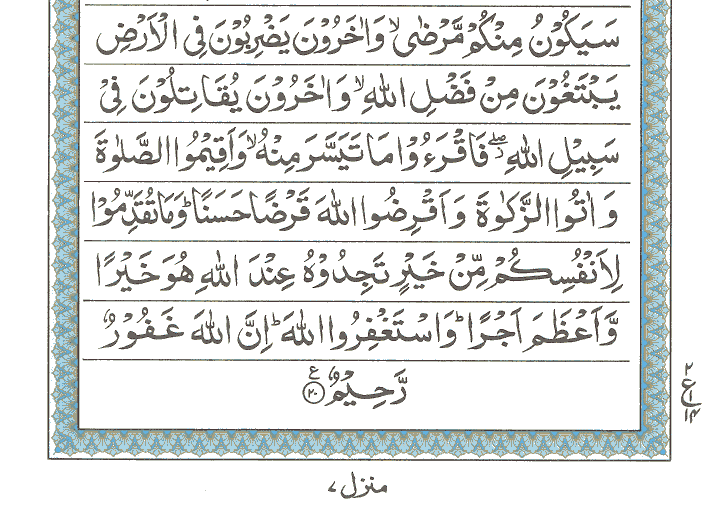 سَيَكُوْنُ مِنْكُمْ مَّرْضٰى ۙ وَاٰخَرُوْنَ يَضْرِبُوْنَ فِى الْاَرْضِ
يَبْتَغُوْنَ مِنْ فَضْلِ اللّٰهِ ۙ وَاٰخَرُوْنَ يُقَاتِلُوْنَ فِىْ
سَبِيْلِ اللّٰهِ ۖ فَاقْرَءُوْا مَا تَيَسَّرَ مِنْهُ ۙ وَاَقِيْمُوا الصَّلٰوةَ
وَاٰتُوا الزَّكٰوةَ وَاَقْرِضُوا اللّٰهَ قَرْضًا حَسَنًا ؕ وَمَا تُقَدِّمُوْا
لِاَنْفُسِكُمْ مِّنْ خَيْرٍ تَجِدُوْهُ عِنْدَ اللّٰهِ هُوَ خَيْرًا
وَّاَعْظَمَ اَجْرًا ؕ وَاسْتَغْفِرُوا اللّٰهَ ؕ اِنَّ اللّٰهَ غَفُوْرٌ
رَّحِيْمٌ ﴿۲۰﴾ ع
۲
ع ۱
۱۴
منزل ۷